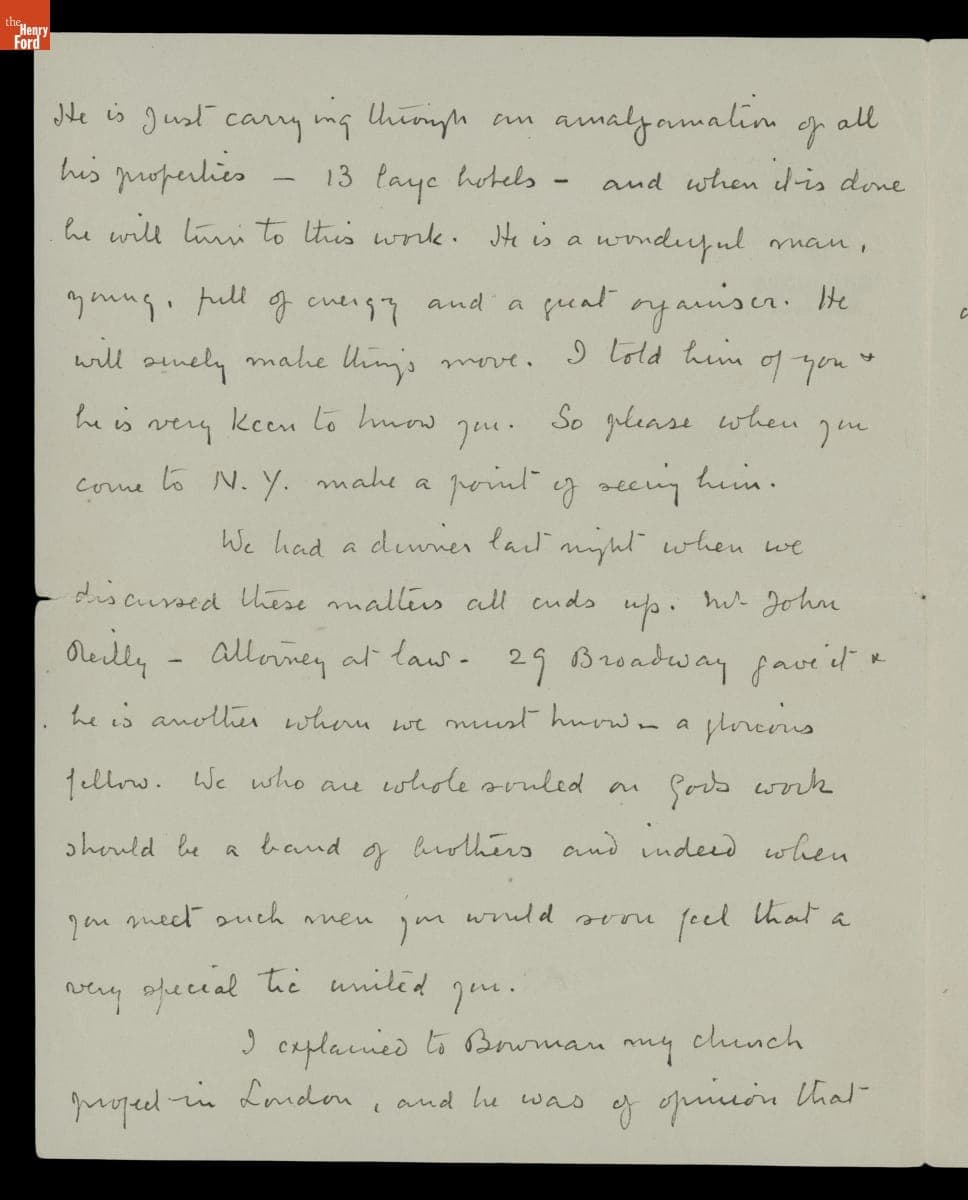 the
Henry
Ford
He is just carrying through an amalgamation of all
his properties – 13 large hotels – and when it is done
he will turn to this work. He is a wonderful man,
young, full of energy and a great organiser. He
will surely make things move. I told him of you &
he is very keen to know you. So please when you
come to N.Y. make a point of seeing him.
We had a dinner last night when we
discussed these matters all ends up. Mr John
Reilly – Attorney at law – 29 Broadway gave it &
he is another whom we must know – a glorious
fellow. We who are whole souled on Gods work
should be a band of brothers and indeed when
you meet such men you would soon feel that a
very special tie united you.
I explained to Bowman my church
project in London, and he was of opinion that